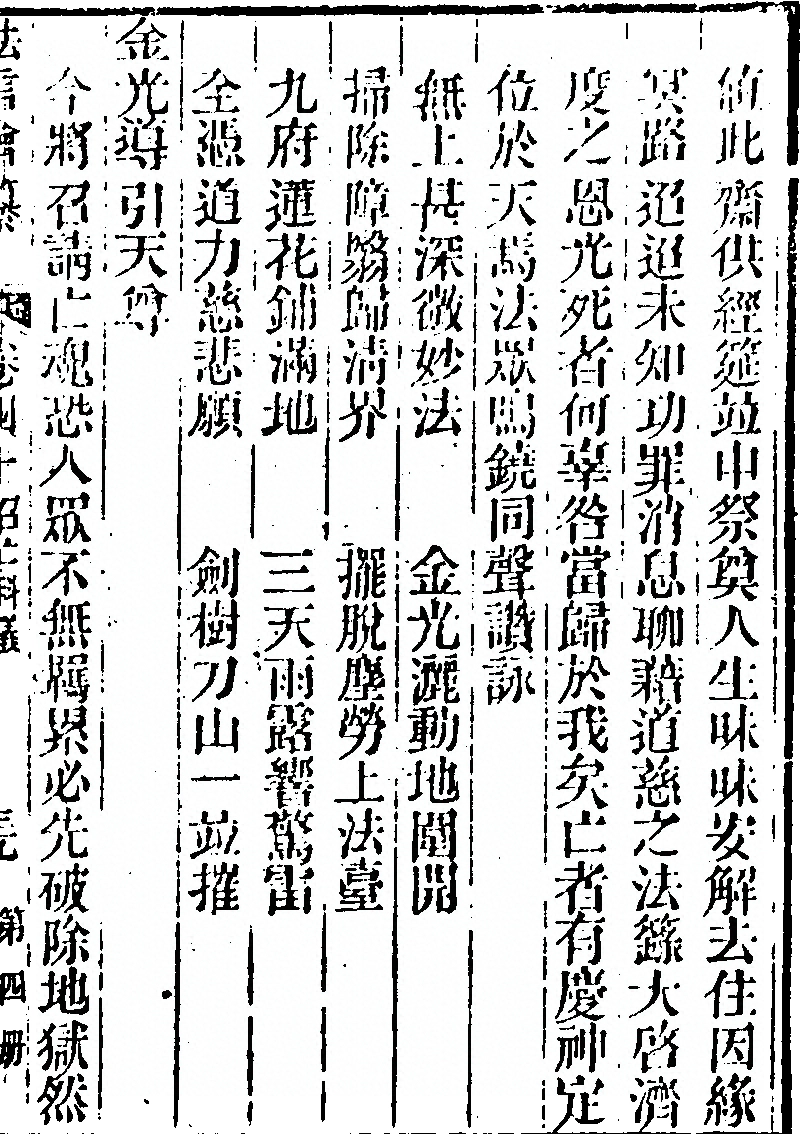 值此齋供經筵並申祭奠人生昧昧安解去住因緣
冥路迢迢未知功罪消息聊藉道慈之法籙大啓濟
度之恩光死者何辜咎當歸於我矣亡者有慶神定
位於天焉法眾鳴鐃同聲讚詠
無上甚深微妙法 金光灑動地關開
掃除障翳歸清界 擺脫塵勞上法臺
九府蓮花鋪滿地 三天雨露響驚雷
全憑道力慈悲願 劍樹刀山一並摧
金光導引天尊
今將召請亡魂恐人眾不無羈累必先破除地獄然
法言會纂 卷四十 召亡科儀 第四册